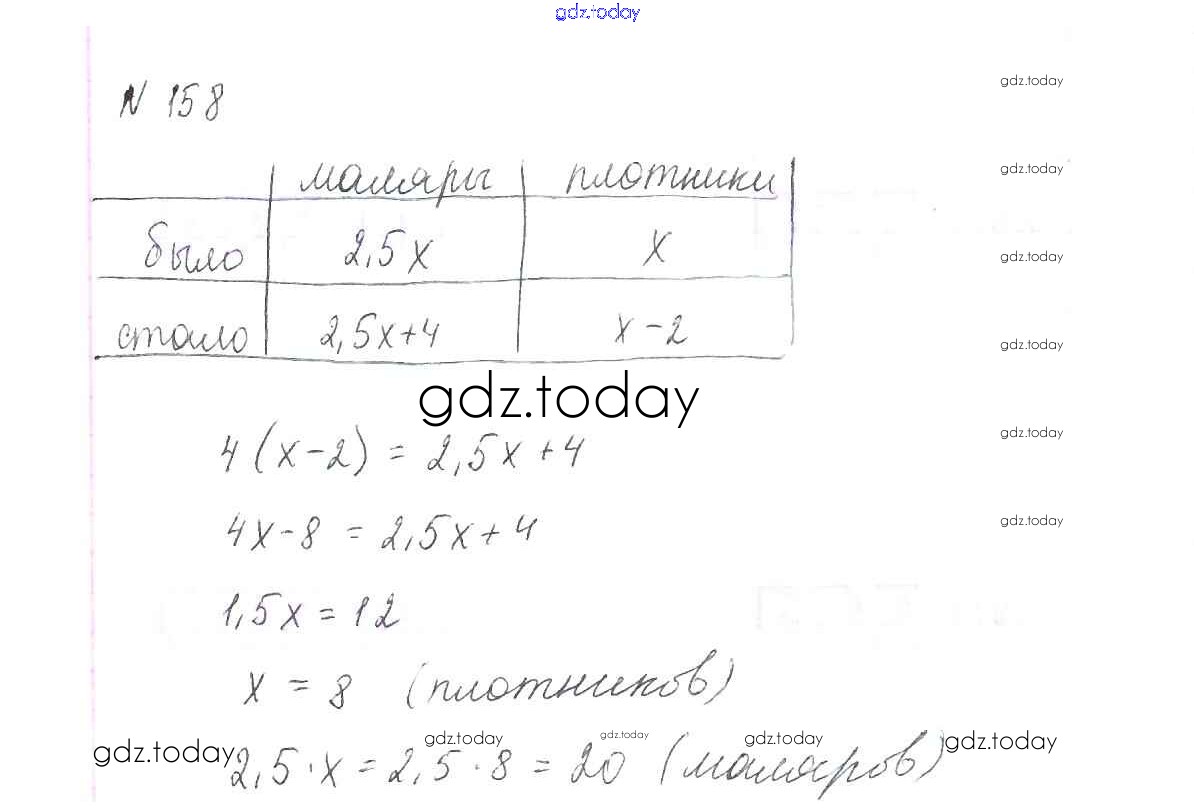 gdz.today
N 158
gdz.today
маляры плотники
gdz.today
было 2,5x x
gdz.today
стало 2,5x+4 x-2
gdz.today
gdz.today
4(x-2) = 2,5x+4
gdz.today
4x-8 = 2,5x+4
gdz.today
1,5x = 12
x = 8 (плотников)
gdz.today gdz.today gdz.today gdz.today gdz.today
2,5·x = 2,5·8 = 20 (маляров)